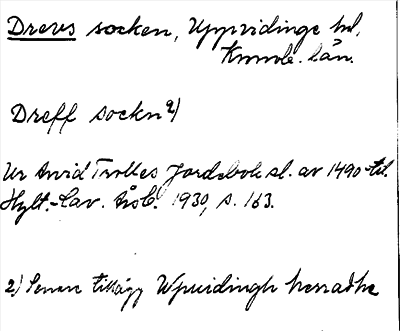 Drevs socken, Uppvidinge hd,
Kronob. län.
Dreff sockn 2)
Ur Arvid Trolles Jordebok sl. av 1490-tal.
Hylt.-Cav. Årsb. 1930, s. 163.
2) Senare tillägg Wpuidingh herradhe